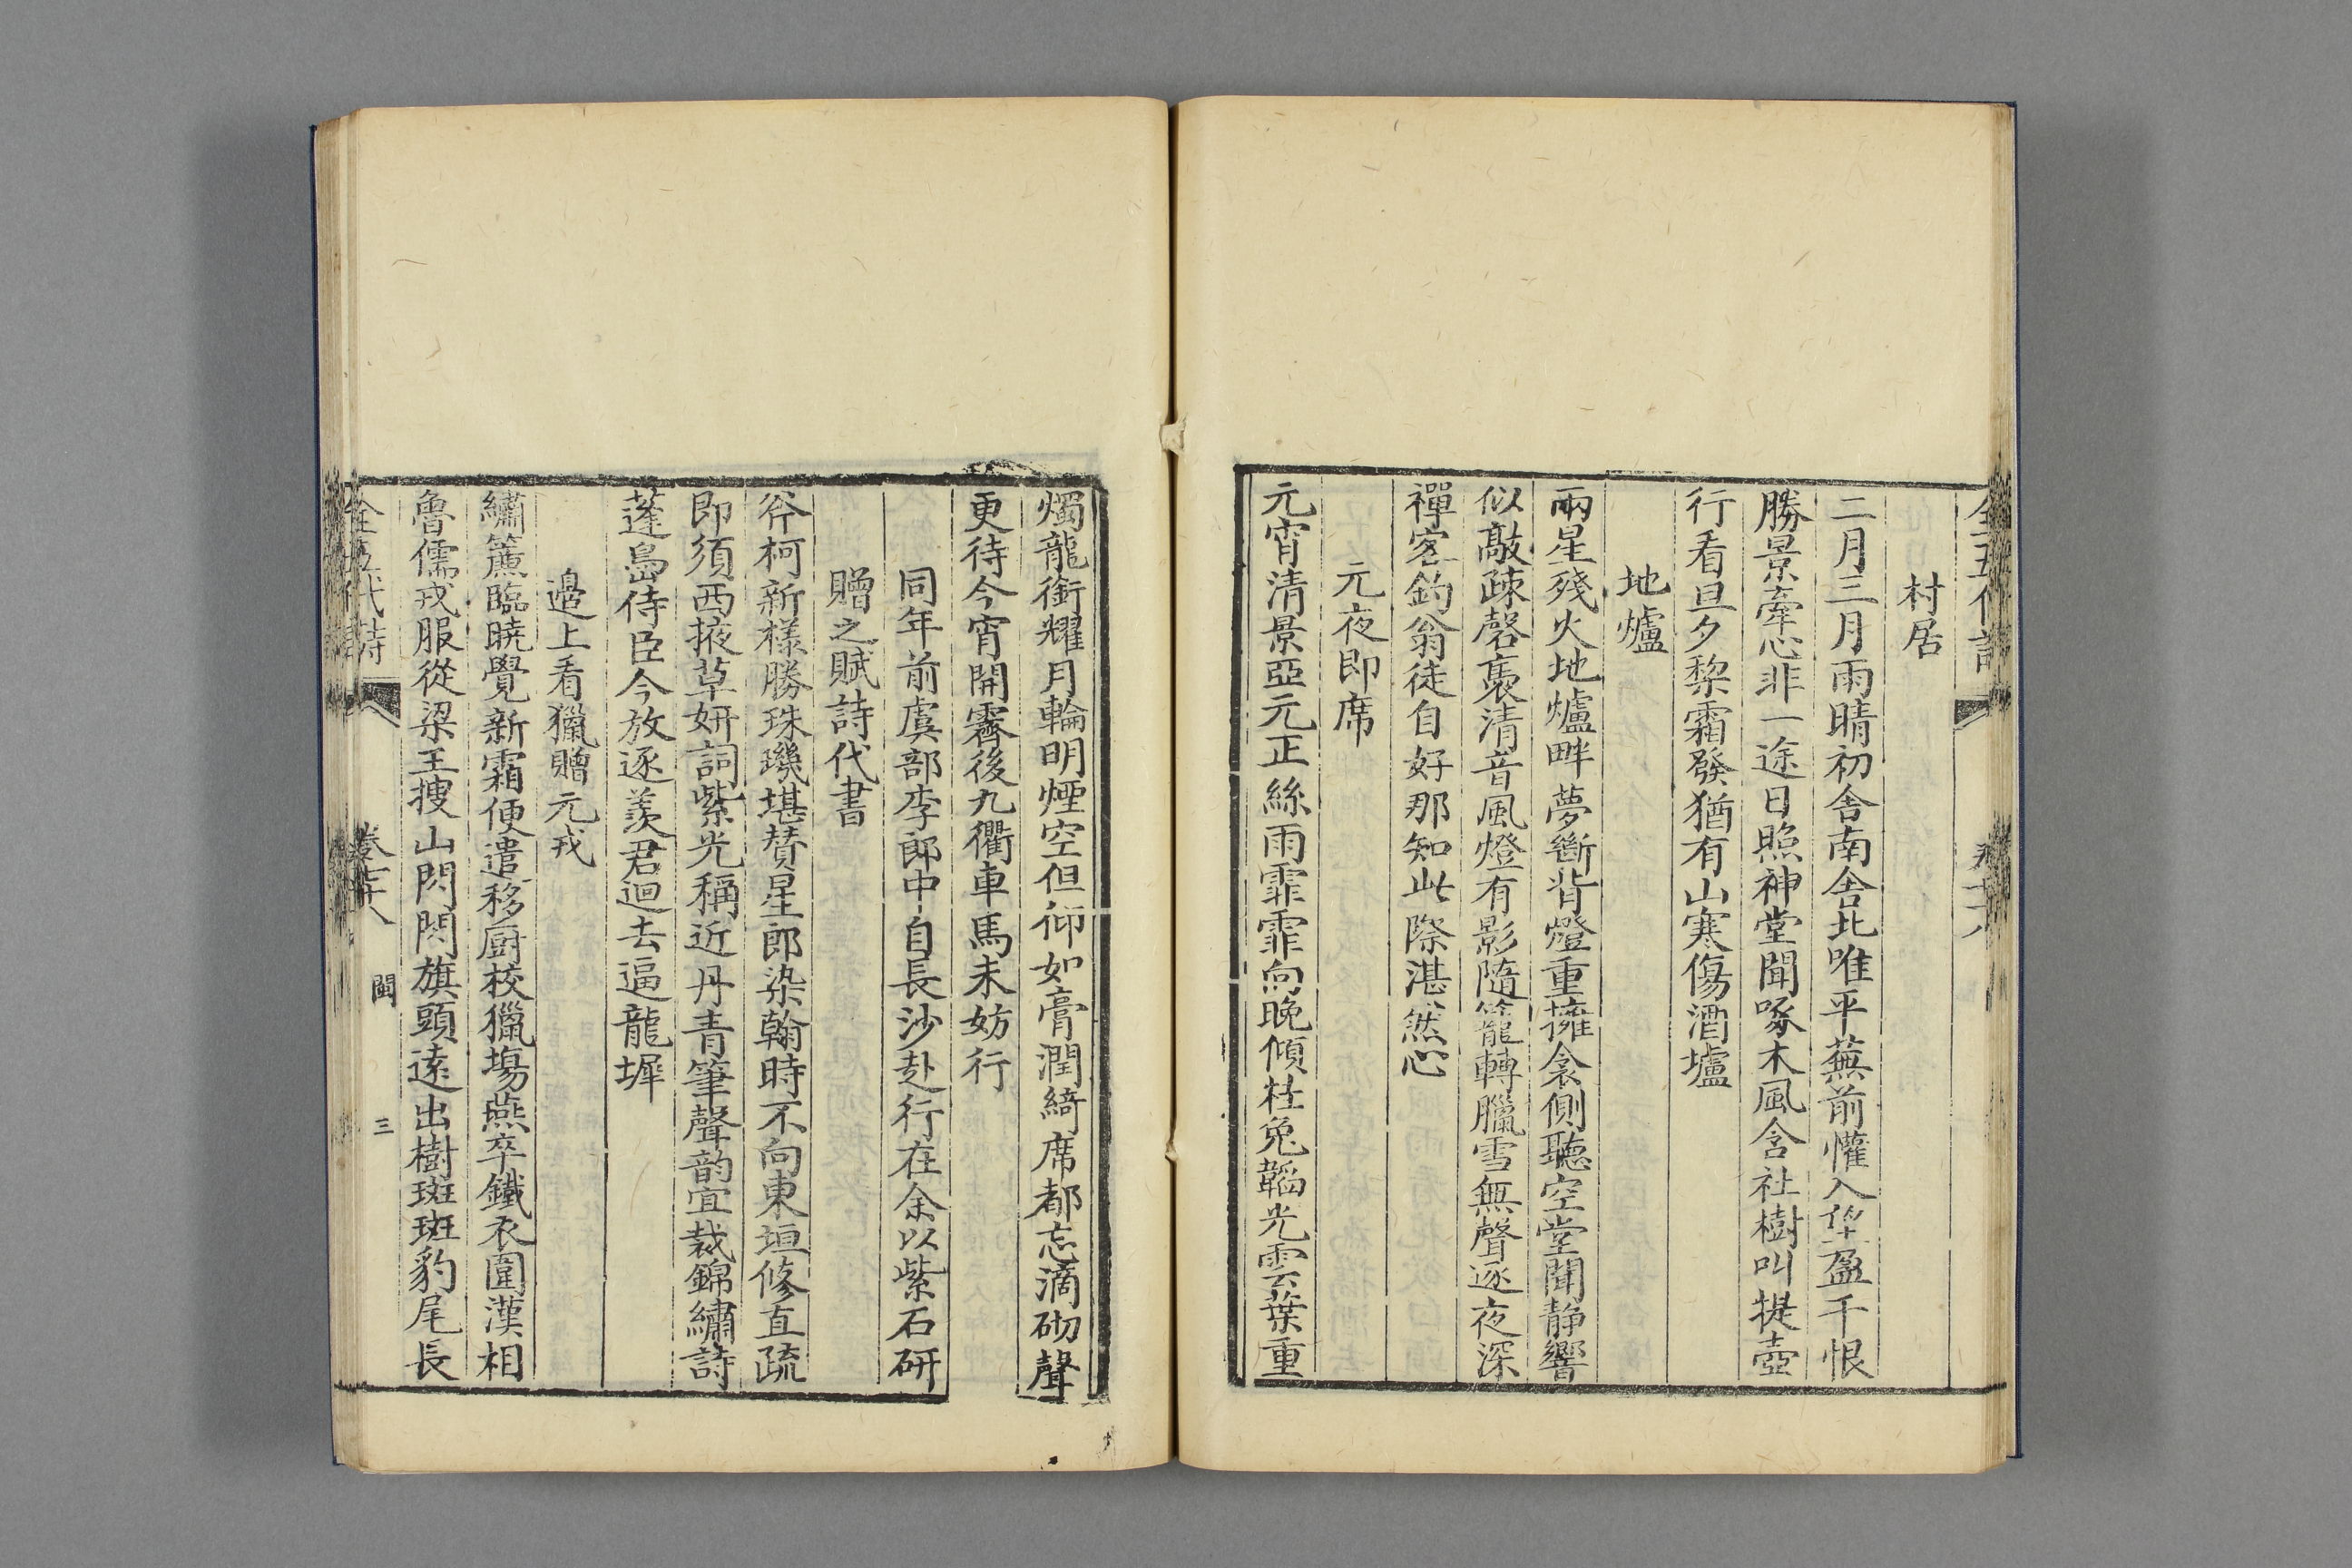 村居
二月三月雨晴初舍南舍北唯平蕪前懽入望盈千恨
勝景牽心非一途日照神堂聞啄木風含社樹叫提壺
行看旦夕棃霜發猶有山寒傷酒壚
地爐
兩星殘火地爐畔夢斷背燈重擁衾側聽空堂聞静響
似敲疎磬褭清音風燈有影隨籠轉臘雪無聲逐夜深
禪客釣翁徒自好那知此際湛然心
元夜即席
元宵清景亞元正絲雨霏霏向晚傾桂兔韜光雲葉重
燭龍銜耀月輪明煙空但仰如膏潤綺席都忘滴砌聲
更待今宵開霽後九衢車馬未妨行
同年前虞部李郎中自長沙赴行在余以紫石硏
贈之賦詩代書
斧柯新樣勝珠璣堪賛星郎染翰時不向東垣修直疏
即須西掖草妍詞紫光稱近丹青筆聲韵宜裁錦繡詩
蓬島侍臣今放逐羨君迴去逼龍墀
邉上看獵贈元戎
繡簾臨曉覺新霜便遣移廚校獵塲燕卒鐵衣圍漢相
魯儒戎服從梁王搜山閃閃旗頭逺出樹斑斑豹尾長
全五代詩 卷七十八 閩 三